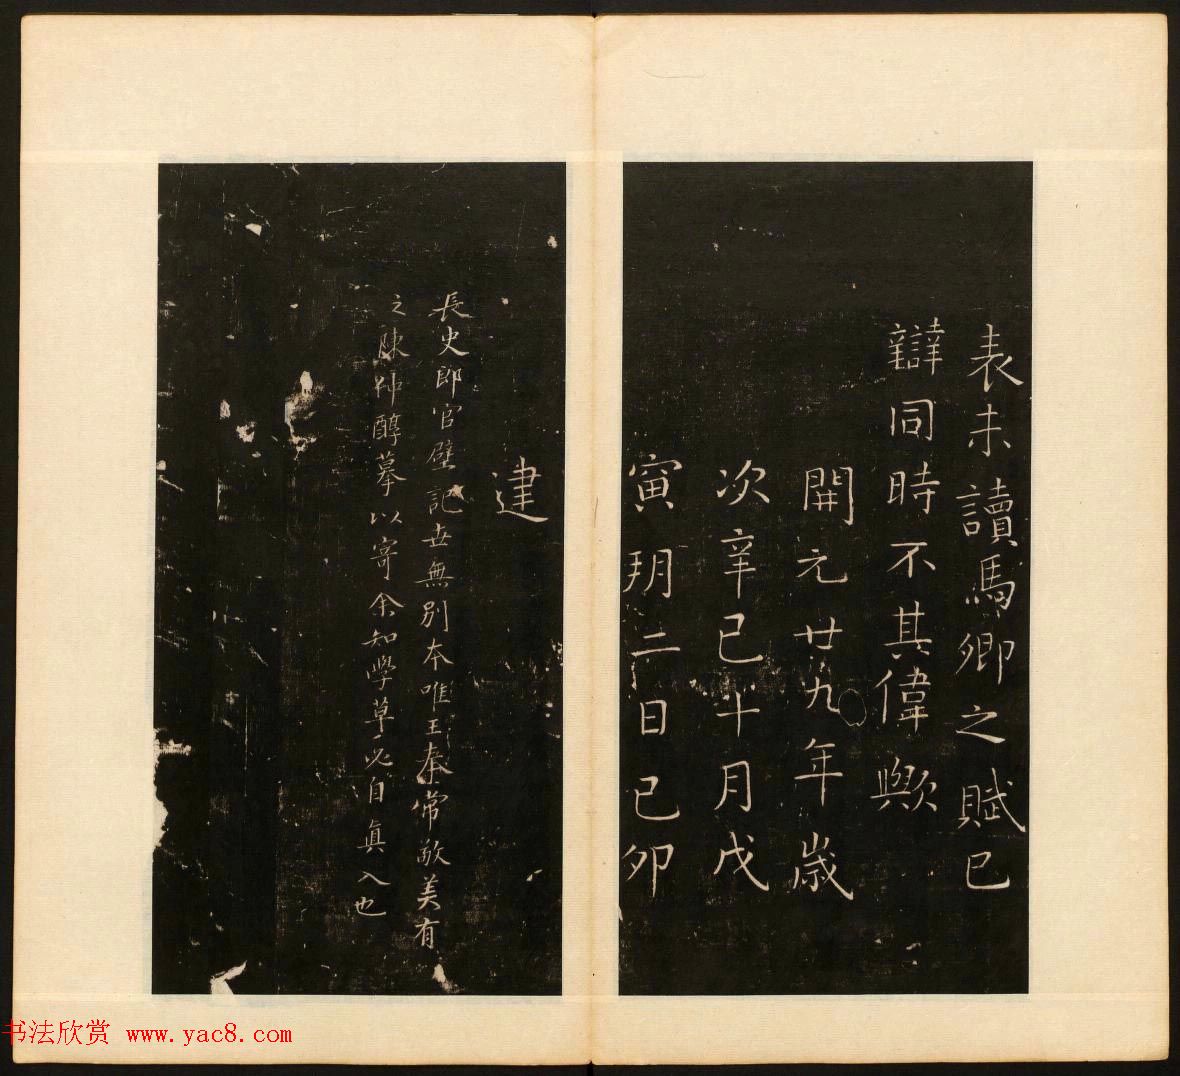 表未讀馬卿之賦已
辯同時不其偉歟
開元廿九年歲
次辛巳十月戊
寅朔二日己卯
建
長史郎官壁記世無別本唯王奉常敬美有
之陳仲醇摹以寄余知學草必自真入也
书法欣赏 www.yac8.com